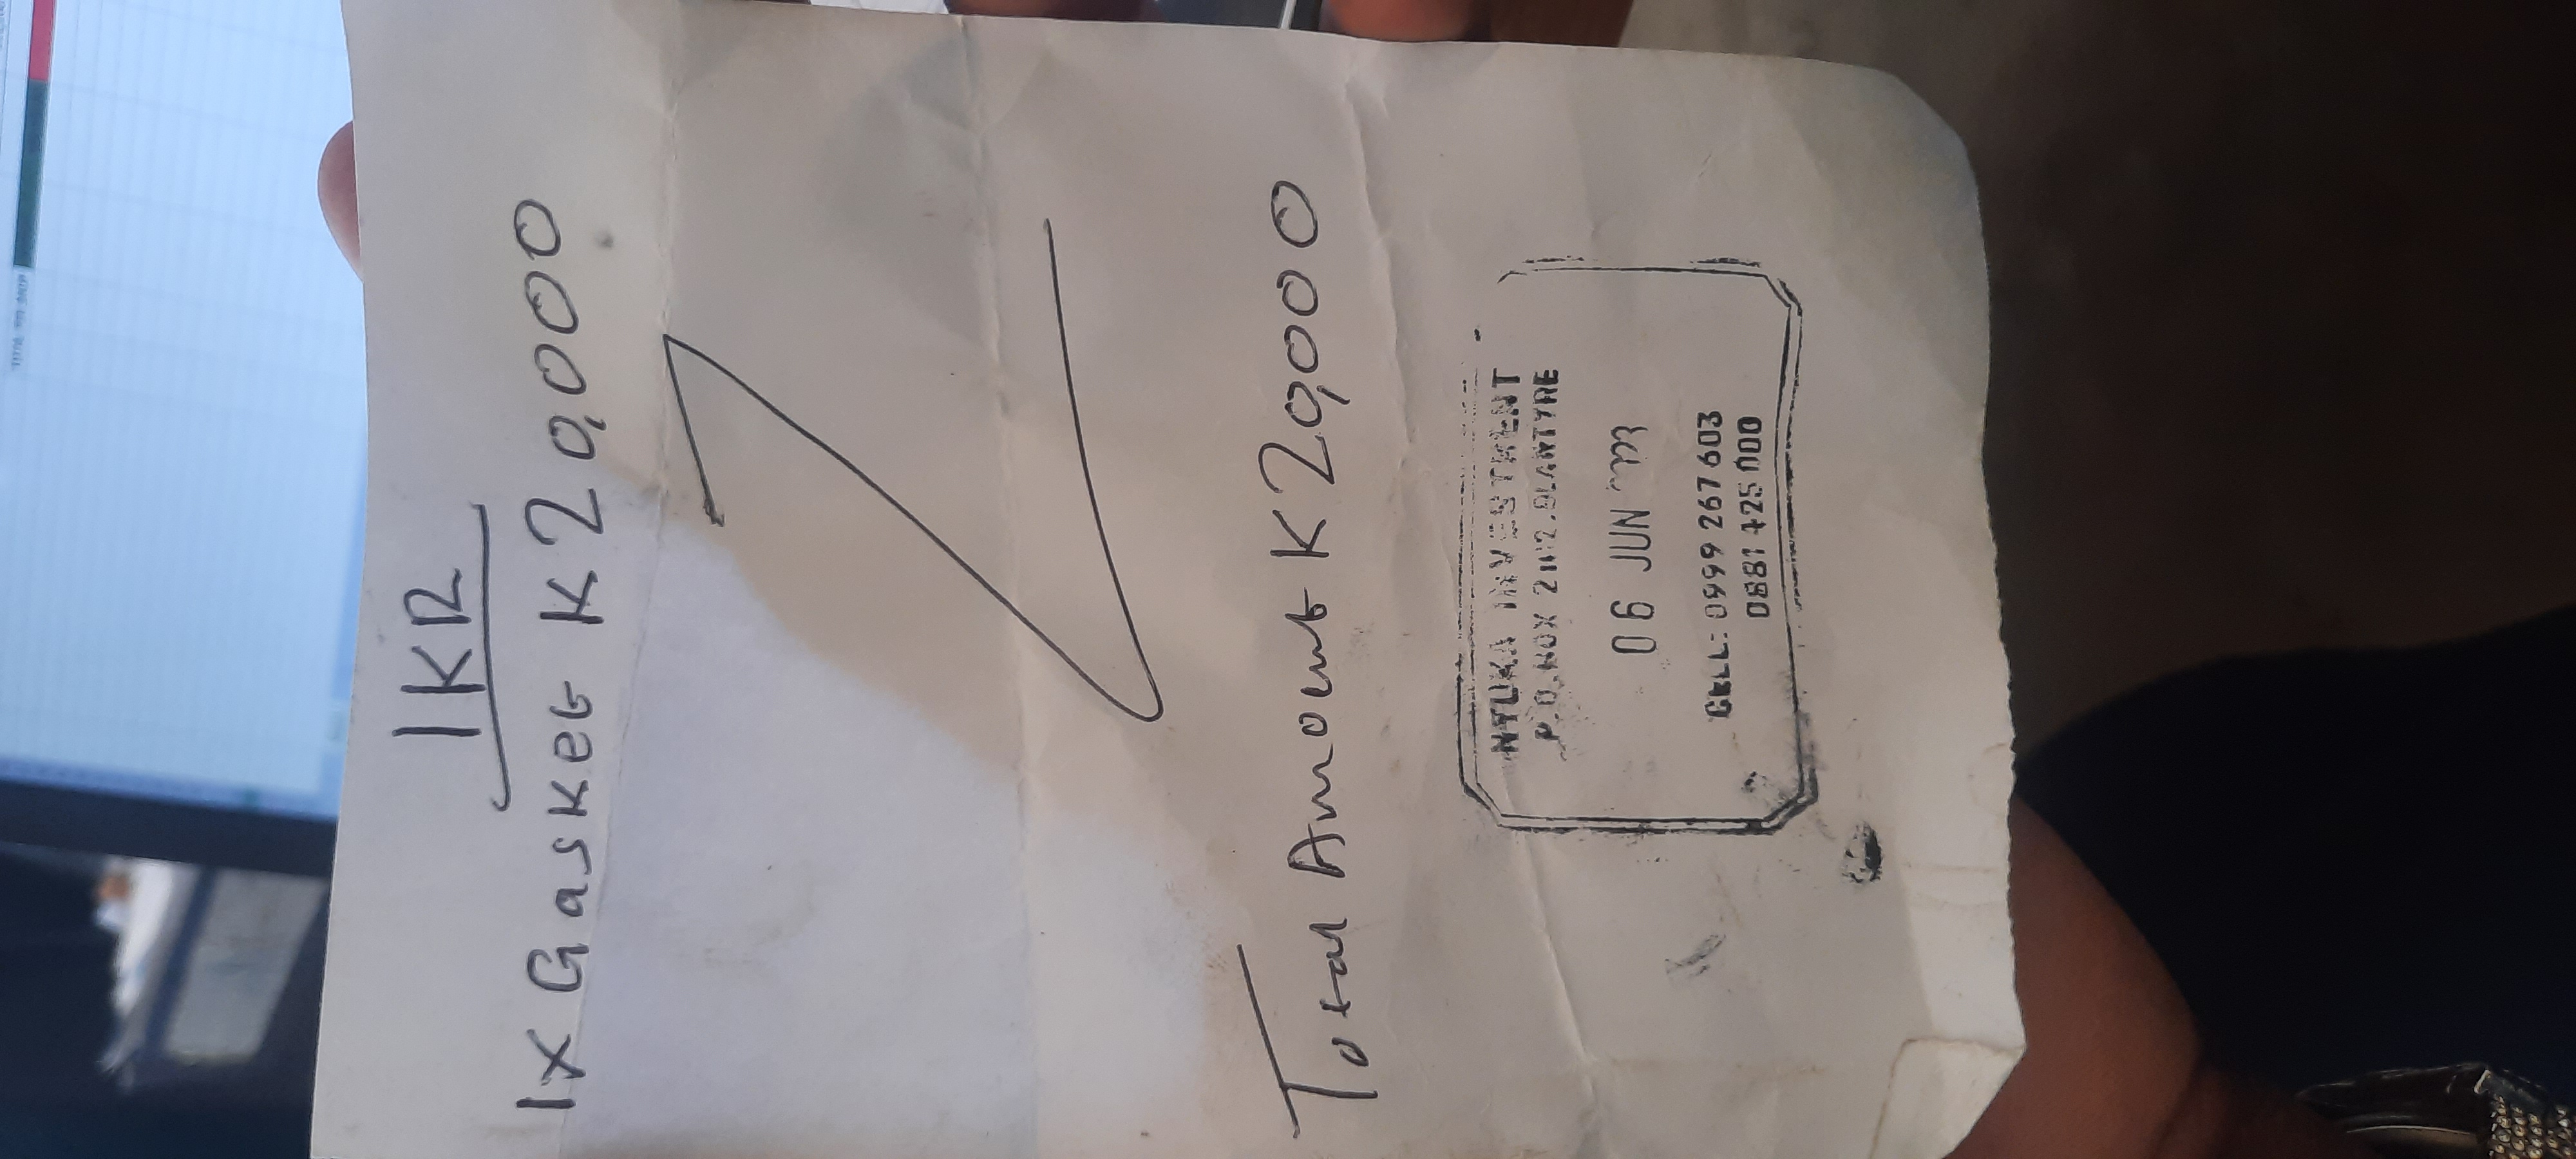 1KR
1x Gasket K20,000
Total Amount K20,000
NYUKA INVESTMENT
P.O. BOX BLANTYRE
06 JUN
CELL: 0999 267 603
0881 425 000